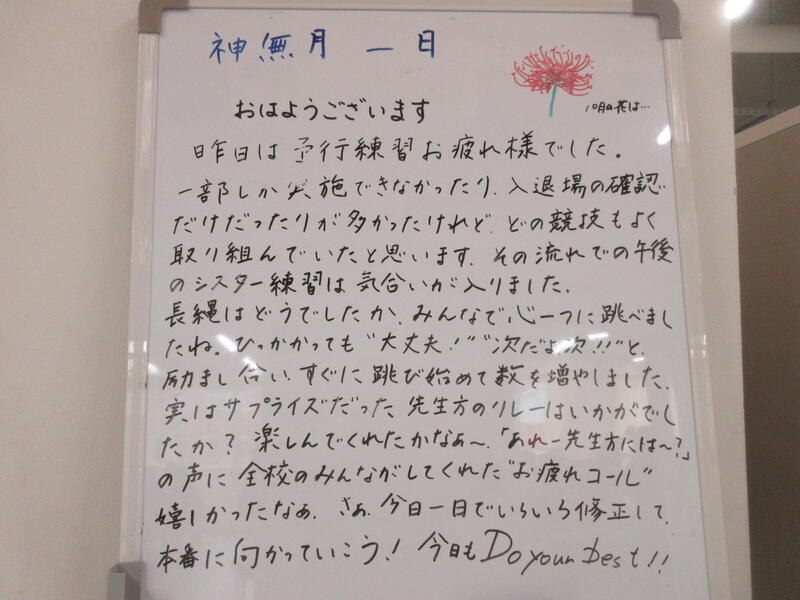 神無月 一日
10月の花は…
おはようございます
昨日は予行練習お疲れ様でした。
一部しか実施できなかったり、入退場の確認
だけだったりが多かったけれど、どの競技もよく
取り組んでいたと思います。その流れでの午後
のシスター練習は気合いが入りました。
長縄はどうでしたか、みんなで心一つに跳べまし
たね。ひっかかっても"大丈夫!""次だよ次!!"と、
励まし合い、すぐに跳び始めて数を増やしました。
実はサプライズだった先生方のリレーはいかがでし
たか?楽しんでくれたかなぁ〜。「あれー先生方には〜?」
の声に全校のみんながしてくれた"お疲れコール"
嬉しかったなぁ。さぁ、今日一日でいろいろ修正して、
本番に向かっていこう!今日もDo your best!!